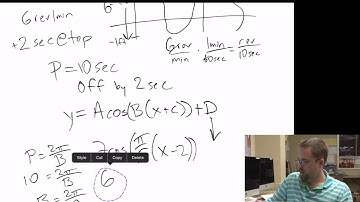 6rev/min
+2sec@top
6rev/min · 1min/60sec = rev/10sec
P=10sec
off by 2sec
y=Acos(B(x+c))+D
P=2π/B
7cos(π/5(x-2))
Style Cut Copy Delete
10=2π/B
6
B=2π